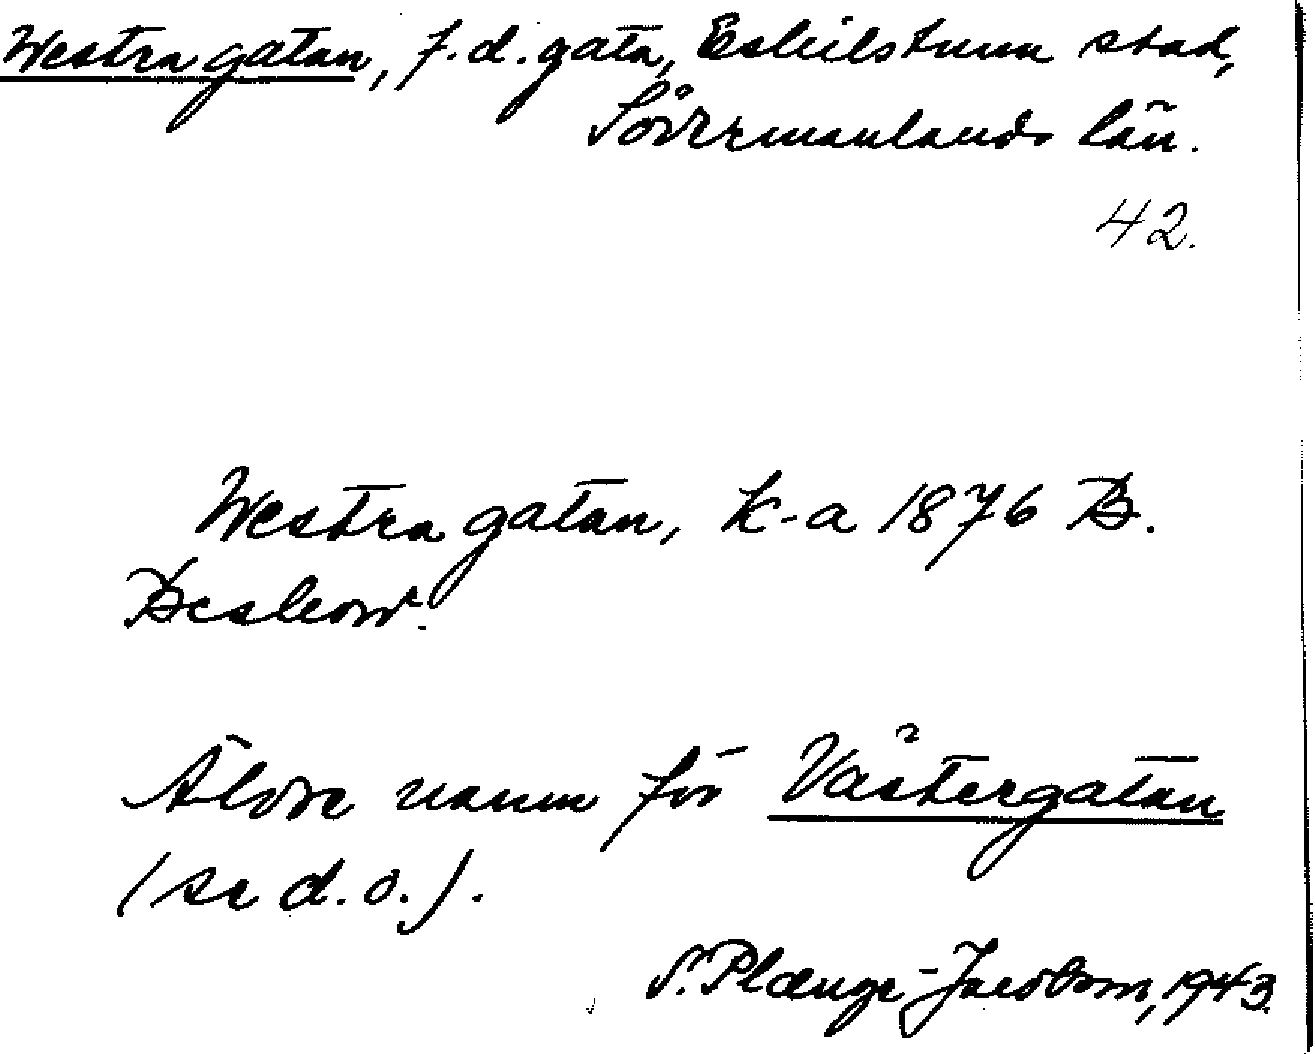 Westra gatan, f.d. gata, Eskilstuna stad,
Södermanlands län.
42.
Westra gatan, K-a 1876 B.
Beskow.
Äldre namn för Västergatan
(se d.o.).
S. Plænge-Jacobson, 1943.